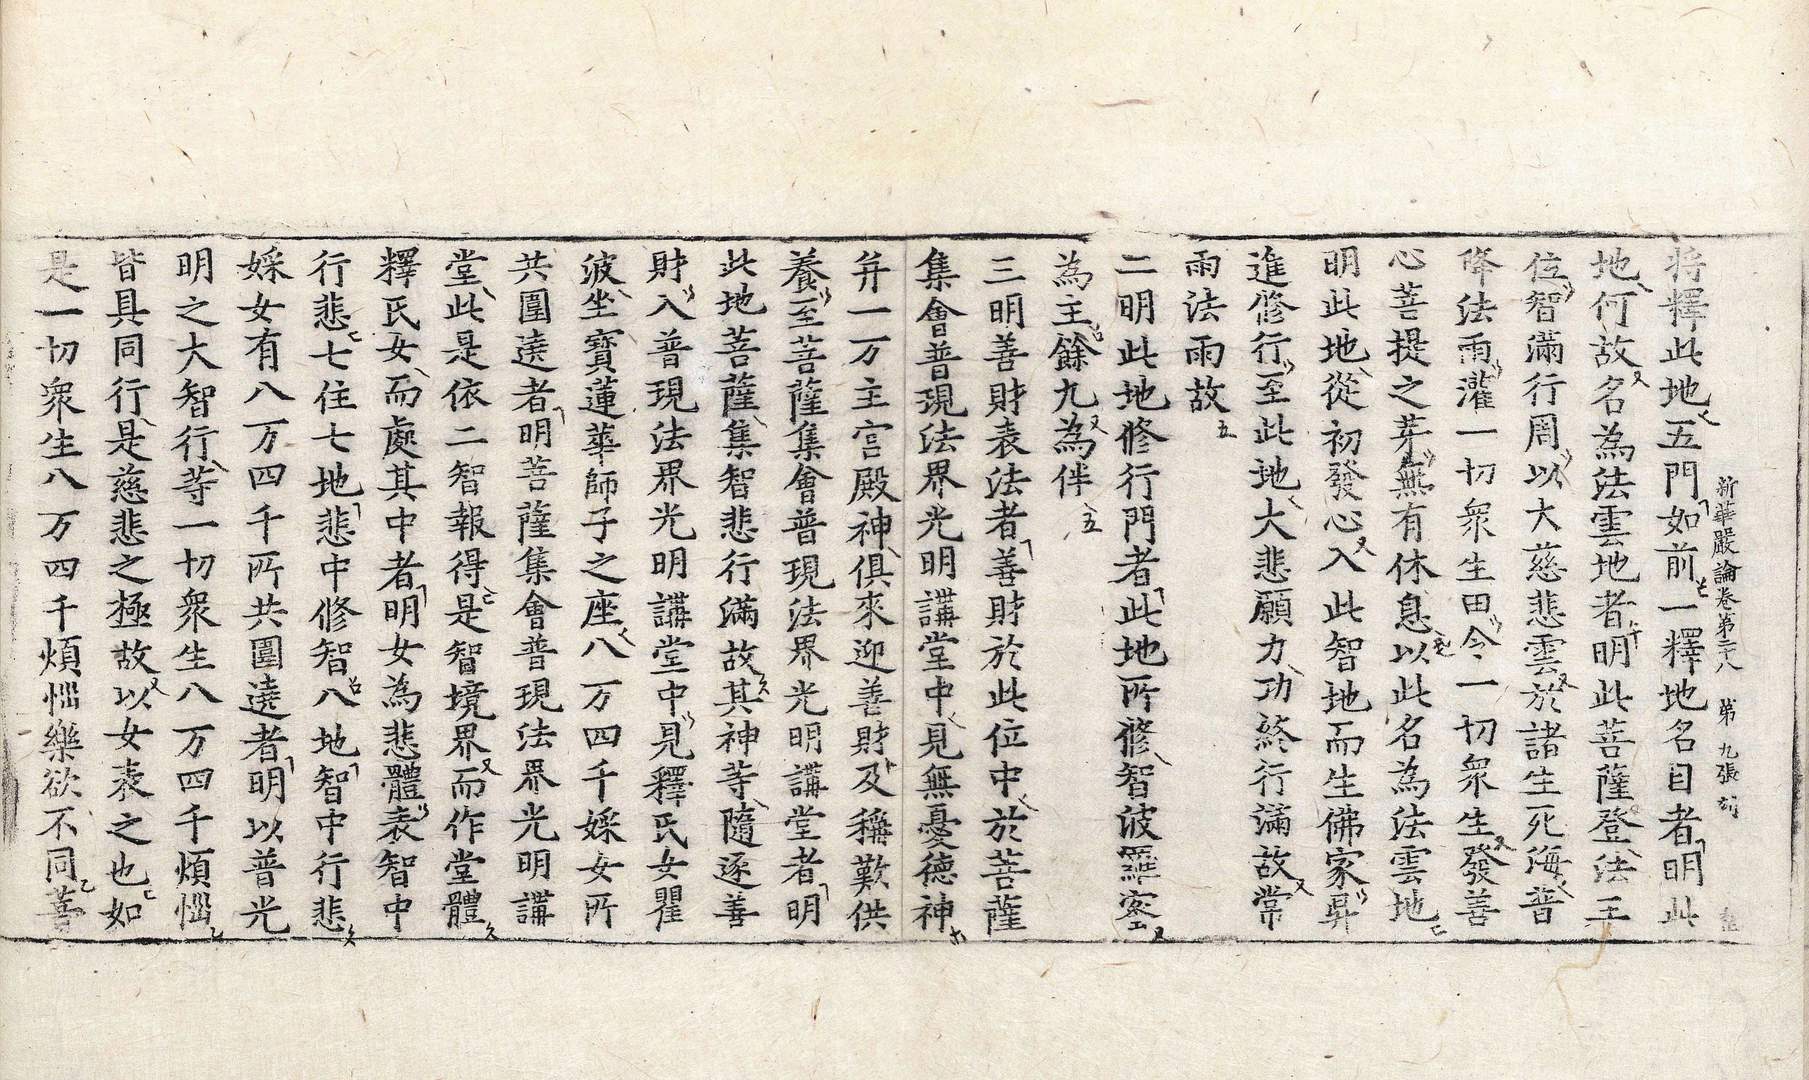 新華嚴論卷第二十八 第九張
將釋此地五門如前一釋地名目者明此
地何故名為法雲地者明此菩薩登法王
位智滿行周以大慈悲雲於諸生死海普
降法雨灌一切衆生田令一切衆生發善
心菩提之芽無有休息以此名為法雲地
明此地從初發心入此智地而生佛家昇
進修行至此地大悲願力功終行滿故常
雨法雨故
二明此地修行門者此地所修智波羅蜜
為主餘九為伴
三明善財表法者善財於此位中於菩薩
集會普現法界光明講堂中見無憂德神
并一万主宫殿神俱來迎善財及稱歎供
養至菩薩集會普現法界光明講堂者明
此地菩薩集智悲行滿故其神等隨逐善
財入普現法界光明講堂中見釋氏女瞿
波坐寶蓮華師子之座八万四千婇女所
共圍遶者明菩薩集會普現法界光明講
堂此是依二智報得是智境界而作堂體
釋氏女而處其中者明女為悲體表智中
行悲七住七地悲中修智八地智中行悲
婇女有八万四千所共圍遶者明以普光
明之大智行等一切衆生八万四千煩惱
皆具同行是慈悲之極故以女表之也如
是一切衆生八万四千煩惱樂欲不同菩